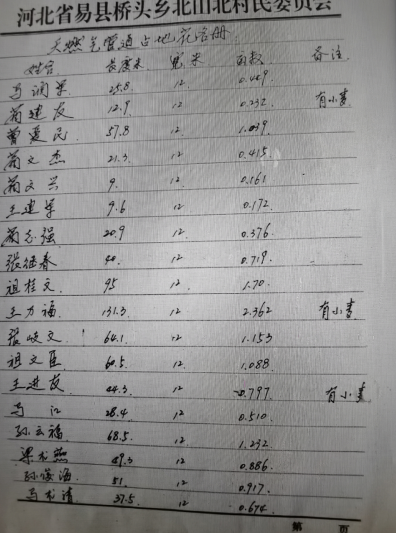 河北省易县桥头乡北山北村民委员会
天燃气管道占地花名册
姓名 长度米 宽米 亩数 备注
马润军 25.8 12 0.469
12.9 12 0.232 有小麦
曹爱民 57.8 12 1.039
文杰 21.3 12 0.415
文兴 9. 12 0.161
王建军 9.6 12 0.172
志强 20.9 12 0.376
张继春 40 12 0.719
祖桂文 95 12 1.70
王力福 131.3 12 2.362 有小麦
张岐文 64.1 12 1.153
祖文臣 60.5 12 1.088
王进友 44.3 12 0.797 有小麦
马江 28.4 12 0.510
孙云福 68.5 12 1.232
梁 49.3 12 0.886
孙 海 51 12 0.917
马 清 37.5 12 0.674
第 页